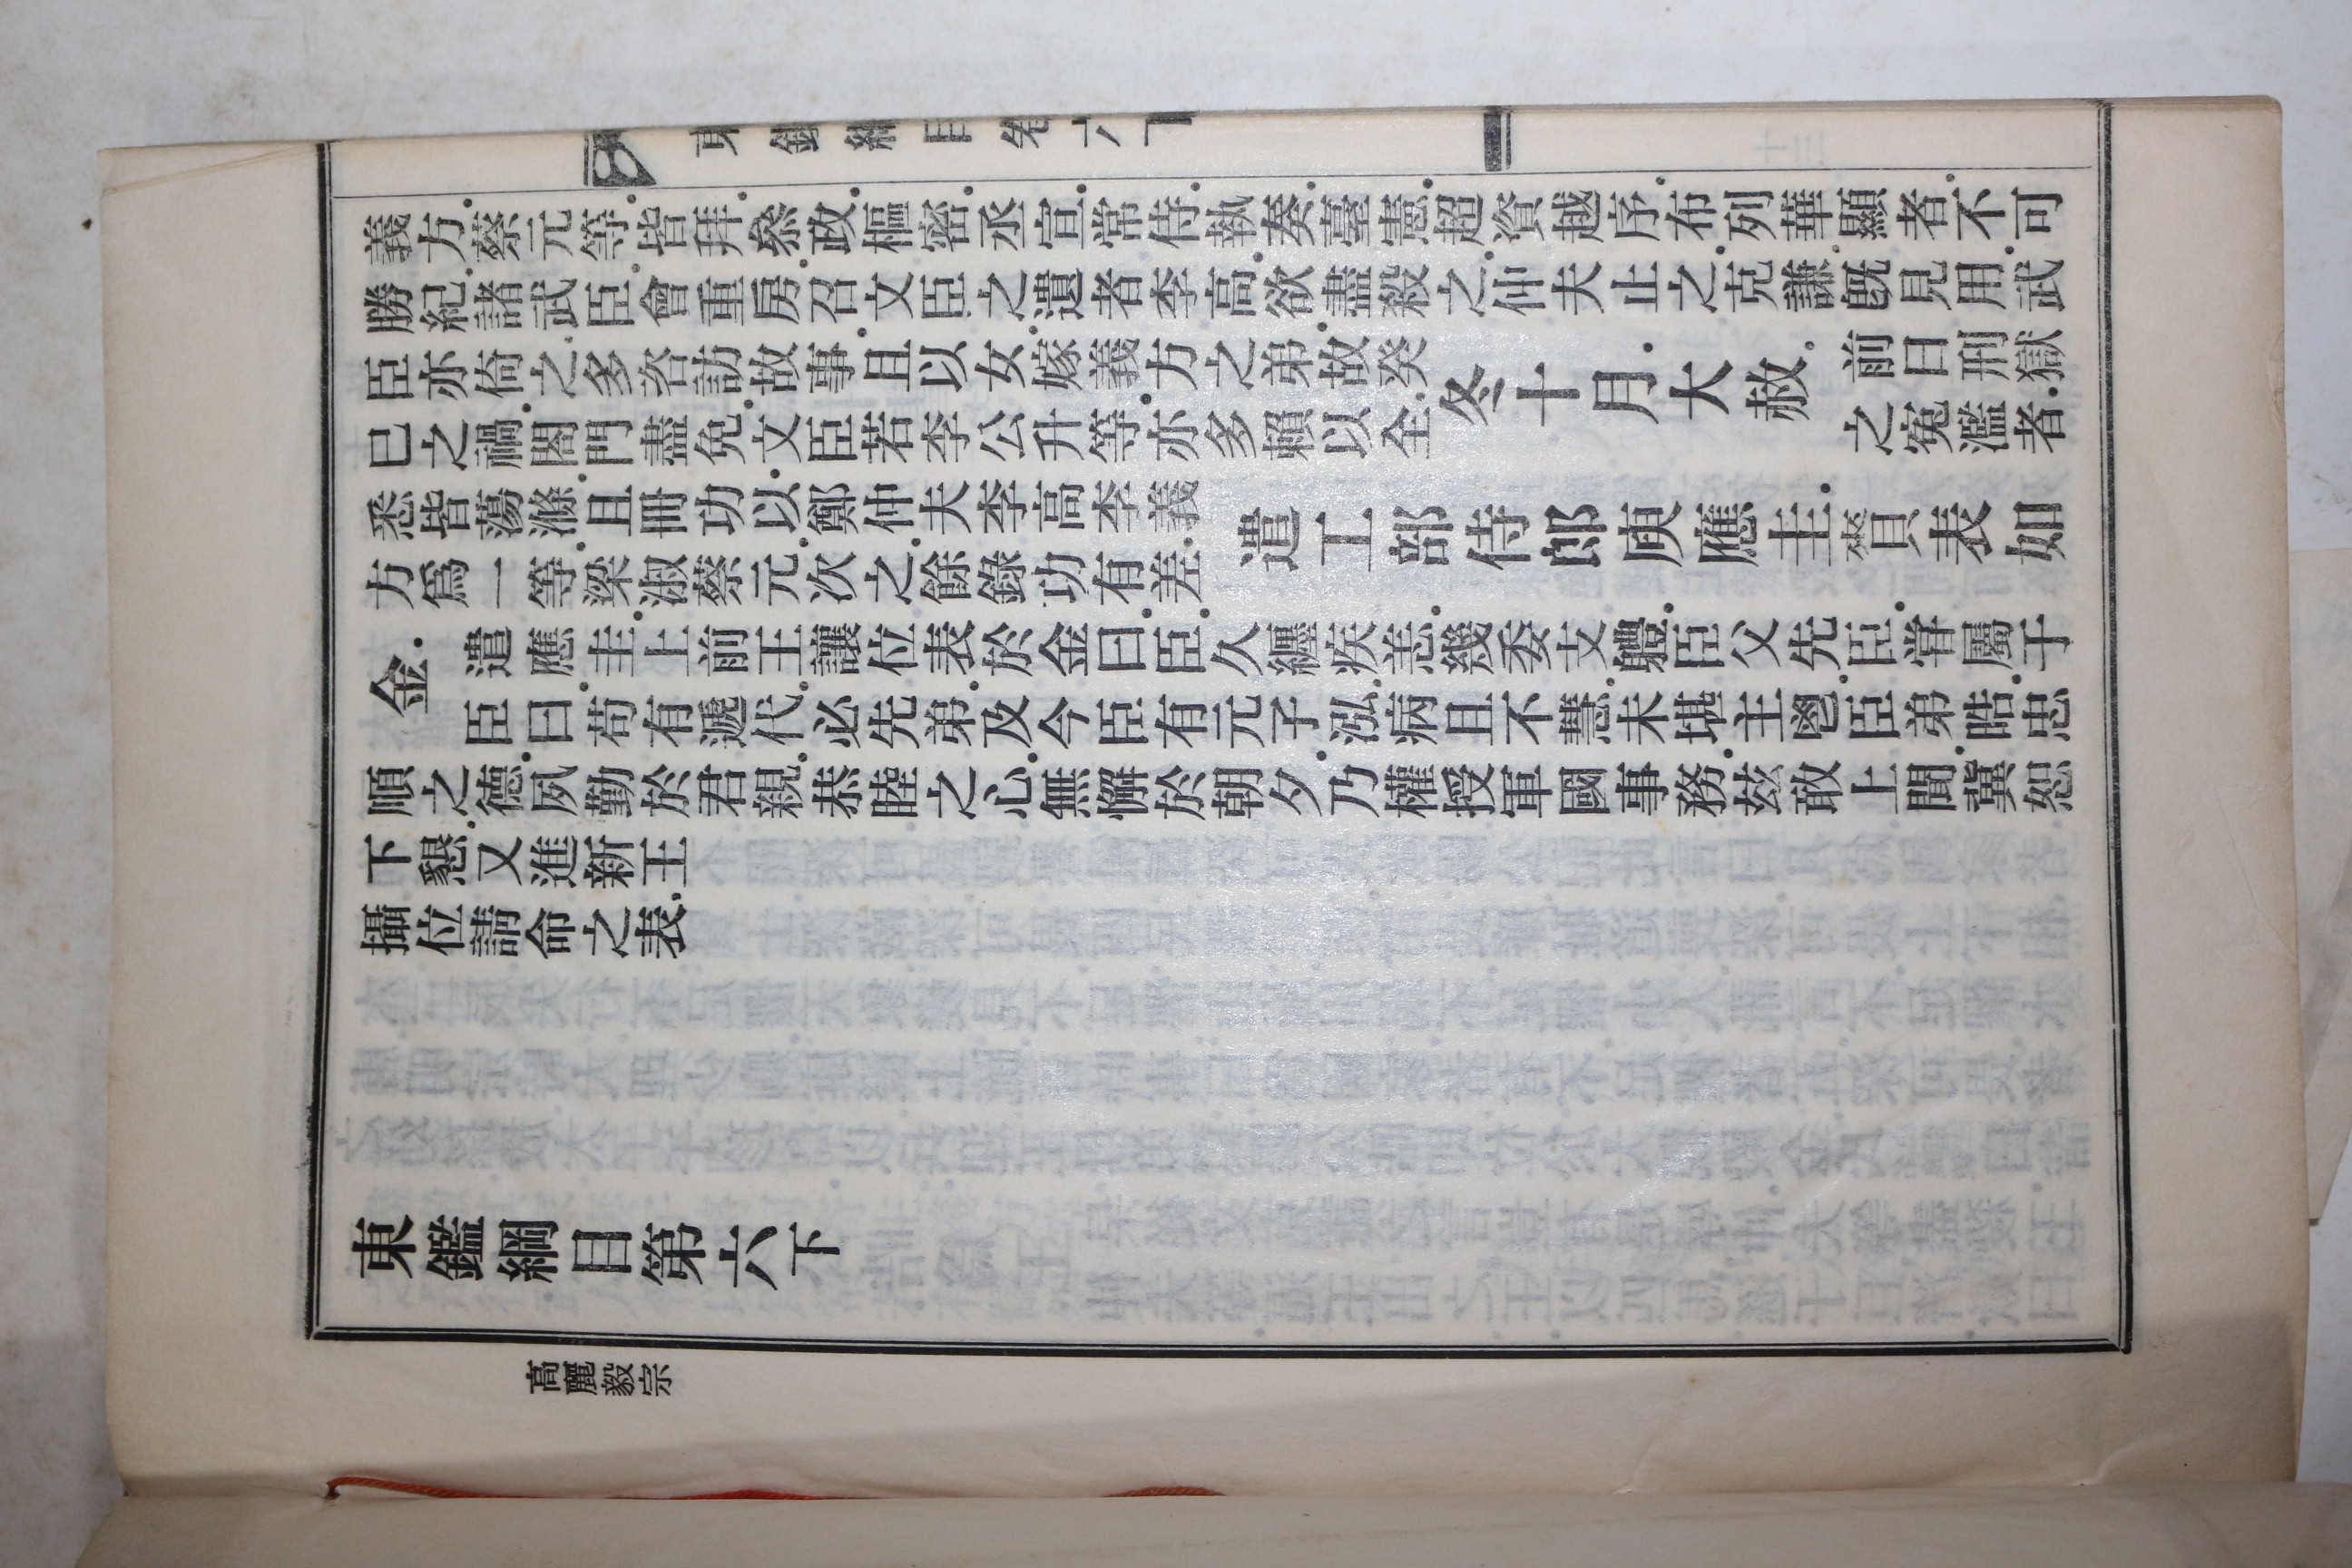 東鑑綱目卷六下
義方.蔡元等.皆拜.叅政.樞密.丞宣.常侍.執奏.臺憲.超資越序.布列華顯者.不可
勝紀.諸武臣.會重房.召文臣之遺者李高.欲盡殺之.仲夫止之.克謙.旣見用.武
臣亦倚之.多咨訪故事.且以女.嫁義方之弟.故癸
巳之禍.閤門盡免.文臣若李公升等.亦多賴以全.
冬十月.大赦.
前日刑獄
之寃濫者.
悉皆蕩滌.且冊功.以鄭仲夫李高李義
方爲一等.梁淑蔡元.次之.餘錄功有差.
遣工部侍郎庾應圭.賫表如
金.
遣應圭.上前王讓位表於金曰.臣.久纏疾恙.幾委支軆.臣父先臣.甞屬于
臣曰.苟有遞代.必先弟.及今臣有元子泓.病且不慧.未堪主鬯.臣弟晧.忠
順之德.夙勤於君親.恭睦之心.無懈於朝夕.乃權授軍國事務.玆敢上聞.冀恕
下懇.又進新王
攝位請命之表.
東鑑綱目第六下
高麗毅宗